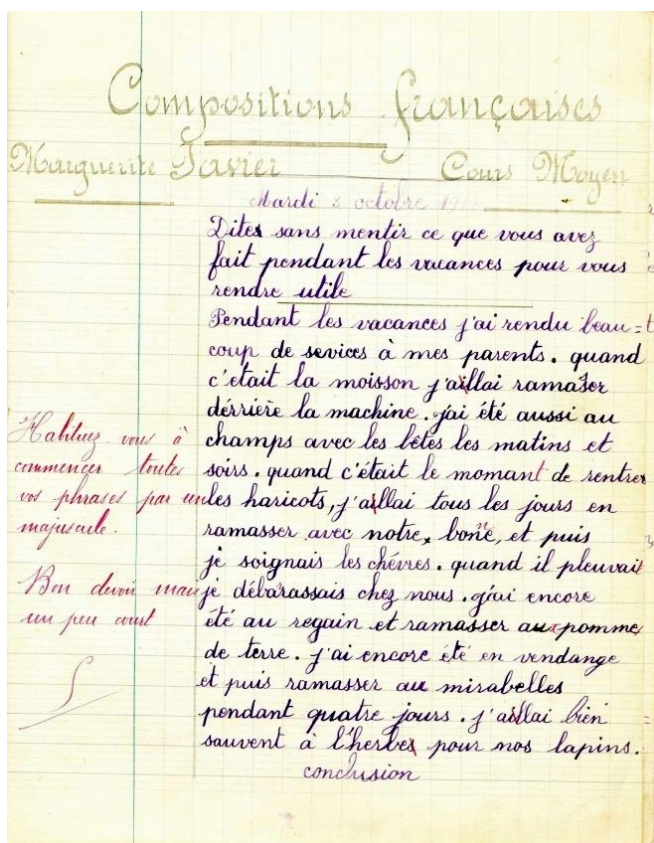 Compositions françaises
Marguerite Javier Cours Moyen
Mardi 3 octobre
Dites sans mentir ce que vous avez
fait pendant les vacances pour vous
rendre utile
Pendant les vacances j'ai rendu beau=
coup de sevices à mes parents. quand
c'était la moisson j'aillai ramaser
dérrière la machine. jai été aussi au
champs avec les bêtes les matins et
soirs. quand c'était le momant de rentrer
les haricots, j'aillai tous les jours en
ramasser avec notre, bone, et puis
je soignais les chévres. quand il pleuvait
je débarassais chez nous. j'ai encore
été au regain et ramasser aux pomme
de terre. j'ai encore été en vendange
et puis ramasser au mirabelles
pendant quatre jours. j'aillai bien
sauvent à l'herbes pour nos lapins.
conclusion
Habituez vous à
commencer toutes
vos phrases par un
majuscule.
Bon devoir mais
un peu court